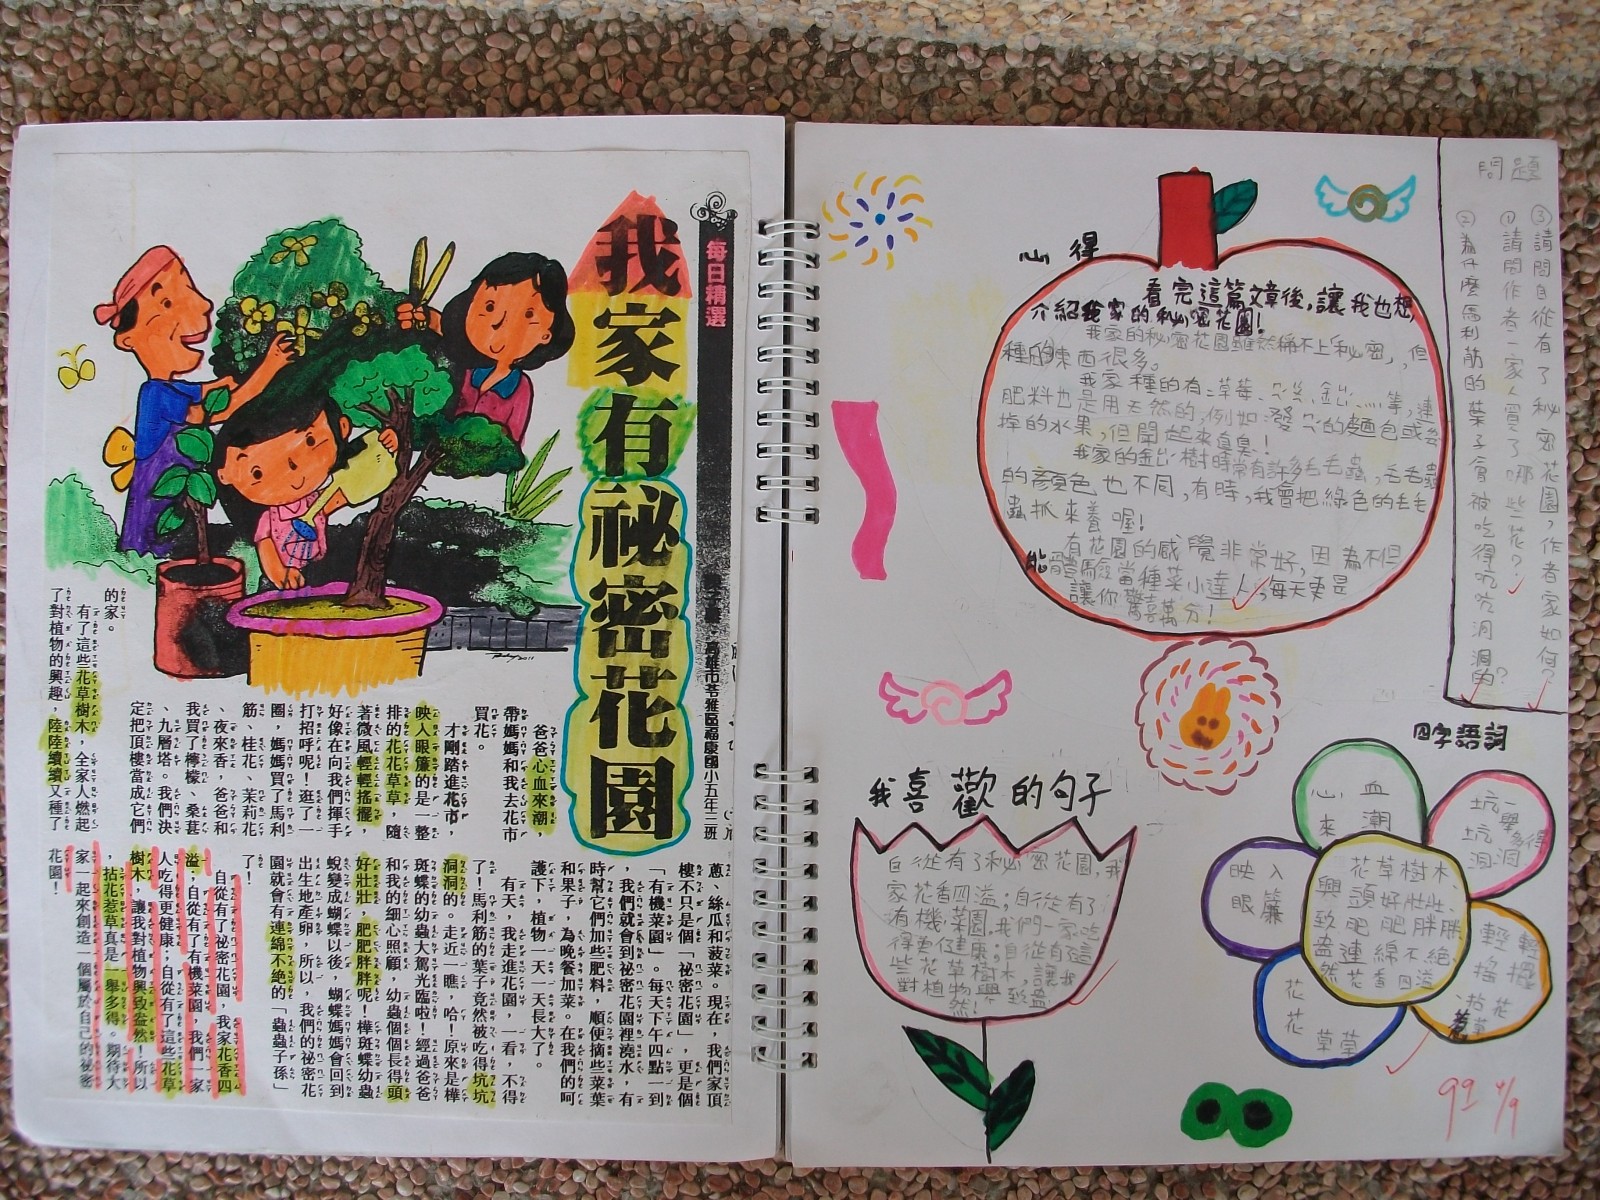 我家有祕密花園
每日精選
高雄市苓雅區福康國小五年三班
爸爸心血來潮，
帶媽媽和我去花市
買花。
才剛踏進花市，
映入眼簾的是一整
排的花花草草，隨
著微風輕輕搖擺，
好像在向我們揮手
打招呼呢！逛了一
圈，媽媽買了馬利
筋、桂花、茉莉花
、夜來香，爸爸和
我買了檸檬、桑葚
、九層塔。我們決
定把頂樓當成它們
的家。
有了這些花草樹木，全家人燃起
了對植物的興趣，陸陸續續又種了
蔥、絲瓜和菠菜。現在，我們家頂
樓不只是個「祕密花園」，更是個
「有機菜園」。每天下午四點一到
，我們就會到祕密花園裡澆水，有
時幫它們加些肥料，順便摘些菜葉
和果子，為晚餐加菜。在我們的呵
護下，植物一天一天長大了。
有天，我走進花園，一看，不得
了！馬利筋的葉子竟然被吃得坑坑
洞洞的。走近一瞧，哈！原來是樺
斑蝶的幼蟲大駕光臨啦！經過爸爸
和我的細心照顧，幼蟲個個長得頭
好壯壯，肥肥胖胖呢！樺斑蝶幼蟲
蛻變成蝴蝶以後，蝴蝶媽媽會回到
出生地產卵，所以，我們的祕密花
園就會有連綿不絕的「蟲蟲子孫」
了！
自從有了祕密花園，我家花香四
溢；自從有了有機菜園，我們一家
人吃得更健康；自從有了這些花草
樹木，讓我對植物興致盎然！所以
，拈花惹草真是一舉多得。期待大
家一起來創造一個屬於自己的祕密
花園！
心得
看完這篇文章後，讓我也想
介紹我家的秘密花園！
我家的秘密花園雖然稱不上秘密，但
種的東西很多。
我家種的有：草莓、ㄍㄨㄥ金出……等，連
肥料也是用天然的，例如：發ㄇㄟˊ的麵包或
掉的水果，但聞起來真臭！
樹時常有許多毛毛蟲，毛毛蟲
的顏色也不同，有時，我會把綠色的毛毛
蟲抓來養喔！
有花園的感覺非常好，因為不但
能體驗當種菜小達人，每天更是
讓你驚喜萬分！
問題
③請問自從有了秘密花園，作者家如何？
①請問作者一家人買了哪些花？
②為什麼馬利筋的葉子會被吃得坑坑洞洞的？
我喜歡的句子
自從有了秘密花園，我
家花香四溢；自從有了
有機菜園，我們一家吃
得更健康；自從有這
些花草樹木，讓我
對植物興致盎
然！
四字語詞
心血來潮
坑坑洞洞
一舉多得
映入眼簾
輕輕搖擺
、拈花惹草
花花草草
花草樹木、
頭好壯壯、
肥肥胖胖、
連綿不絕、
花香四溢
興致盎然
99 4/9